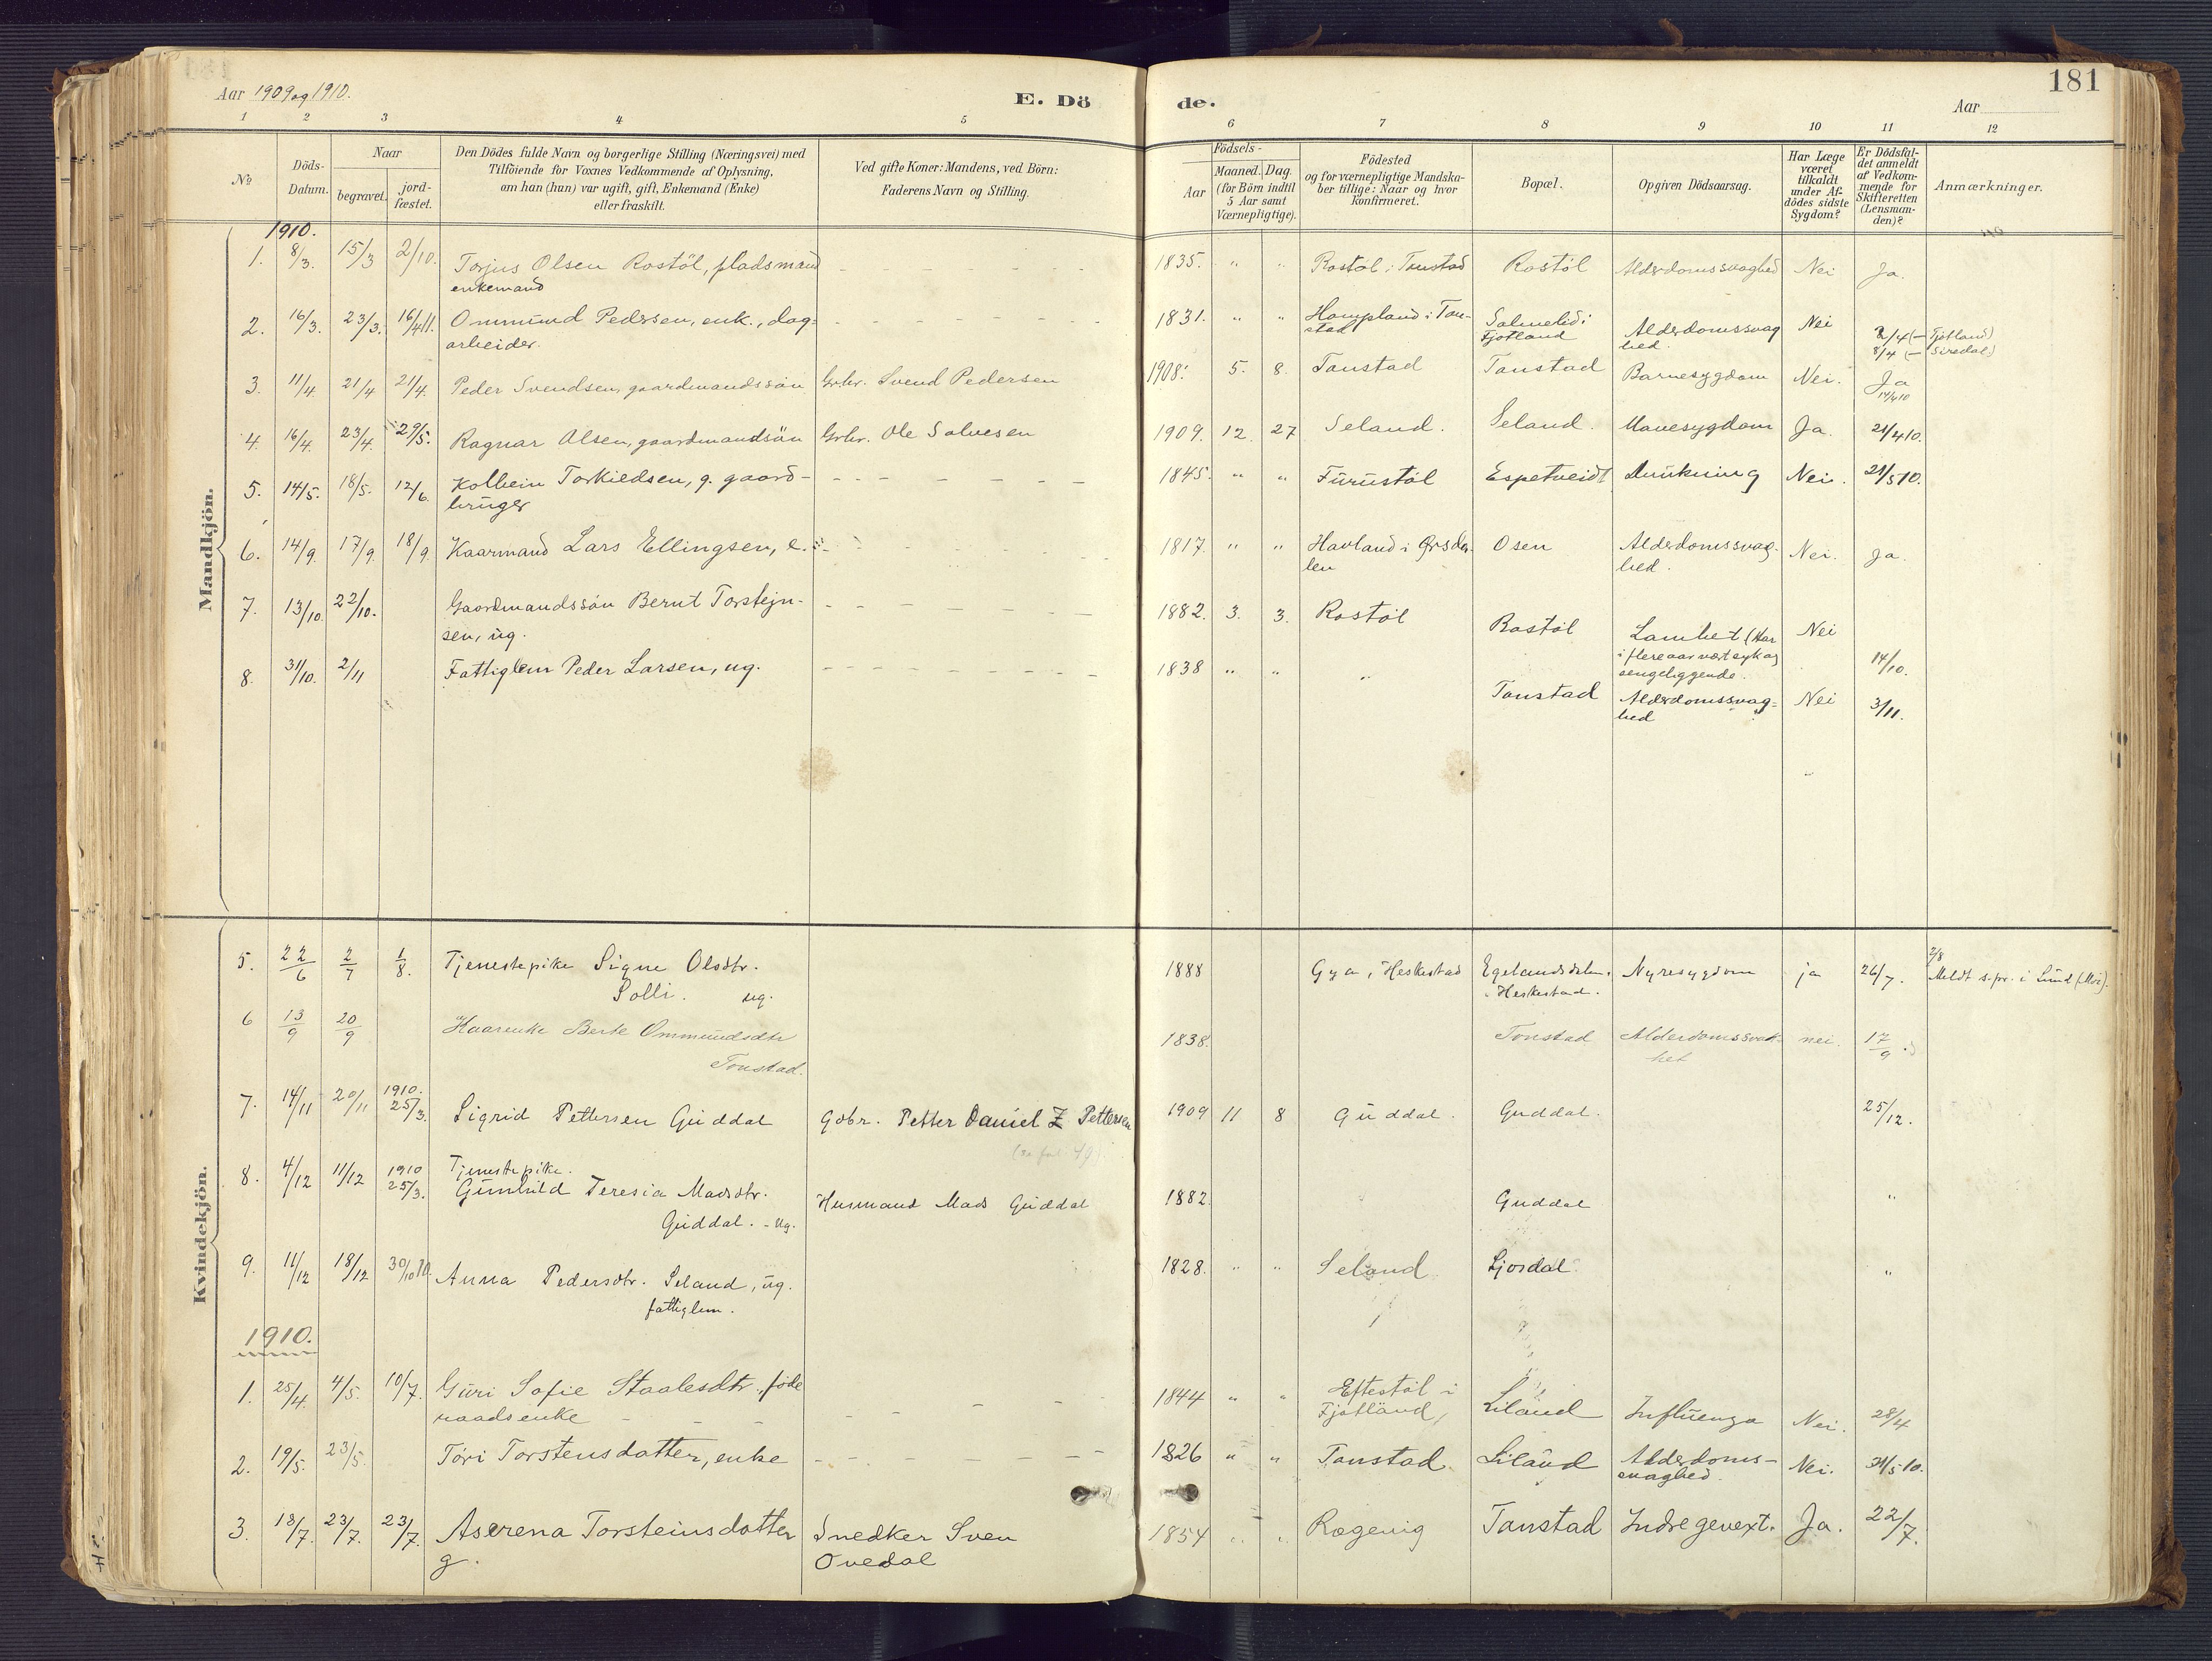 Aar 1909 og 1910.
E. Dö
de.
Aar
181
1 2 3 4 5 6 7 8 9 10 11 12
No
Döds-
Datum.
Naar
begravet.
jord-
fæstet.
Den Dödes fulde Navn og borgerlige Stilling (Næringsvei) med
Tilföiende for Voxnes Vedkommende af Oplysning,
om han (hun) var ugift, gift, Enkemand (Enke)
eller fraskilt.
Ved gifte Koner: Mandens, ved Börn:
Faderens Navn og Stilling.
Födsels-
Aar
Maaned. Dag.
(for Börn indtil
5 Aar samt
Værnepligtige).
Födested
og for værnepligtige Mandska-
ber tillige: Naar og hvor
konfirmeret.
Bopæl.
Opgiven Dödsaarsag.
Har Læge
været
tilkaldt
under Af-
dödes sidste
Sygdom?
Er Dödsfal-
det anmeldt
af Vedkom-
mende for
Skifteretten
(Lensman-
den)?
Anmærkninger.
Mandkjön.
1910.
1. 8/3. 15/3 2/10. Torjus Olsen Rostöl, pladsmand 1835. " " Rostöl i Tonstad Rostöl Alderdomssvaghed Nei Ja.
enkemand
2. 16/3. 23/3. 16/4 11. Ommund Pedersen, enk., dag= 1831. " " Hompland i Ton- Salmelid i Alderdomssvag Nei 2/4 (– Fjotland)
arbeider. stad Fjotland hed. 8/4 (– Siredal)
3. 11/4. 21/4 21/4. Peder Svendsen, gaardmandssön Grbr. Svend Pedersen 1908. 5. 8. Tonstad Tonstad Barnesygdom Nei. Ja
14/4 10
4. 16/4. 23/4. 29/5. Ragnar Olsen, gaardmandsön Grbr. Ole Salvesen 1909. 12. 27 Seland. Seland. Mavesygdom Ja. 21/4 10.
5. 14/5. 18/5. 12/6. Kolbein Torkieldsen, g. gaard- 1845. " " Furustöl Espetveidt Drukning Nei. 21/5 10.
bruger
6. 14/9. 17/9. 18/9. Kaarmand Lars Ellingsen, e. 1817. " " Havland i Örsda- Osen Alderdomssvag- Nei. Ja.
len hed.
7. 13/10. 22/10. Gaardmandssön Bernt Torstejn- 1882. 3. 3. Rostöl Rostöl Lamhet (Har Nei 14/10.
sen, ug. i flere aar vært syk og
sengeliggende.
8. 31/10. 2/11 Fattiglem Peder Larsen, ug. 1838 " " " Tonstad Alderdomssvag= Nei 3/11.
hed
Kvindekjön.
5. 22/6 2/7 1/8. Tjenestepike Signe Olsdtr. 1888 Gya, Heskestad Egelandsdalen. Nyresygdom ja 26/7. 2/8 Meldt s.pr. i Lund (Moi).
Solli. ug. i Heskestad.
6 13/9 20/9 Kaarenke Berte Ommundsdtr 1838. Tonstad Alderdomssvak- nei. 17/9.
Tonstad. het
7. 14/11 20/11 1910. 25/3. Sigrid Pettersen Guddal Gdbr. Petter Daniel Z Pettersen 1909 11 8 Guddal. Guddal. 25/12.
8. 4/12 11/12 1910 25/3. Tjenestepike.
Gunhild Teresia Madsdtr. Husmand Mads Guddal 1882. Guddal "
Guddal. - ug.
9. 11/12 18/12 30/10 10. Anna Pedersdtr. Seland, ug. 1828. " " Seland Ljosdal. "
fattiglem.
1910.
1. 25/4. 4/5. 10/7. Guri Sofie Staalesdtr. föde 1844 " " Eftestöl i Liland Influenza Nei. 28/4
raadsenke Fjotland,
2. 19/5. 23/5. Töri Torstensdatter, enke 1826 " " Tonstad Liland Alderdoms- Nei. 21/5 10.
svaghed.
3. 18/7. 23/7. 23/7. Aserena Torsteinsdatter Snedker Sven 1854 " " Rægevig Tonstad Indre gevext. Ja. 22/7.
g. Ovedal